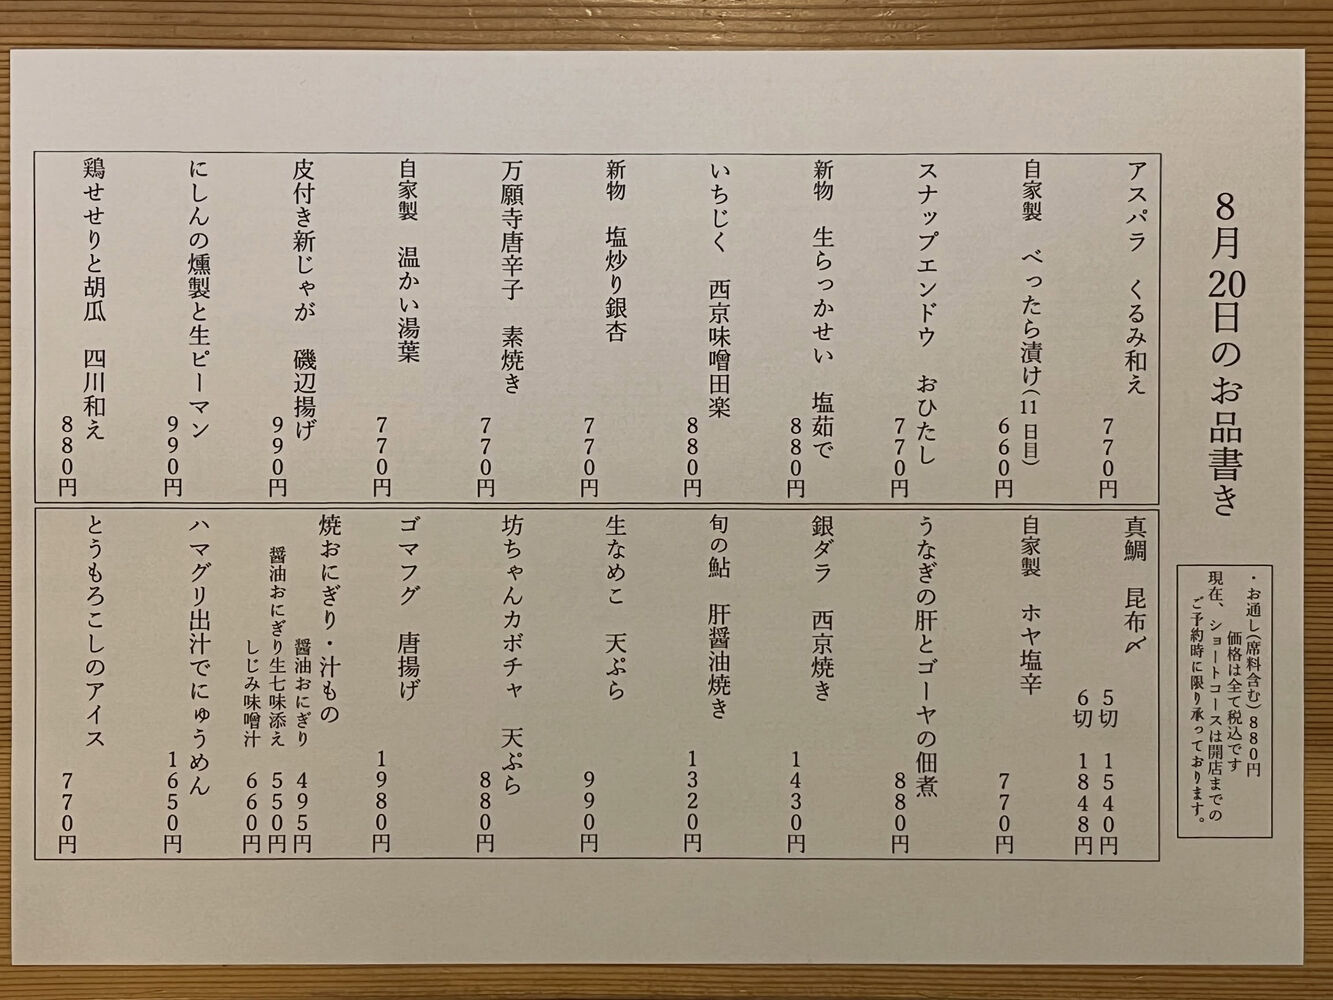 8月20日のお品書き
・お通し(席料含む)880円
価格は全て税込です
現在、ショートコースは開店までの
ご予約時に限り承っております。
アスパラ　くるみ和え
770円
自家製　べったら漬け(11日目)
660円
スナップエンドウ　おひたし
770円
新物　生らっかせい　塩茹で
880円
いちじく　西京味噌田楽
880円
新物　塩炒り銀杏
770円
万願寺唐辛子　素焼き
770円
自家製　温かい湯葉
770円
皮付き新じゃが　磯辺揚げ
990円
にしんの燻製と生ピーマン
990円
鶏せせりと胡瓜　四川和え
880円
真鯛　昆布〆
5切　1540円
6切　1848円
自家製　ホヤ塩辛
770円
うなぎの肝とゴーヤの佃煮
880円
銀ダラ　西京焼き
1430円
旬の鮎　肝醤油焼き
1320円
生なめこ　天ぷら
990円
坊ちゃんカボチャ　天ぷら
880円
ゴマフグ　唐揚げ
1980円
焼おにぎり・汁もの
醤油おにぎり　495円
醤油おにぎり生七味添え　550円
しじみ味噌汁　660円
ハマグリ出汁でにゅうめん
1650円
とうもろこしのアイス
770円